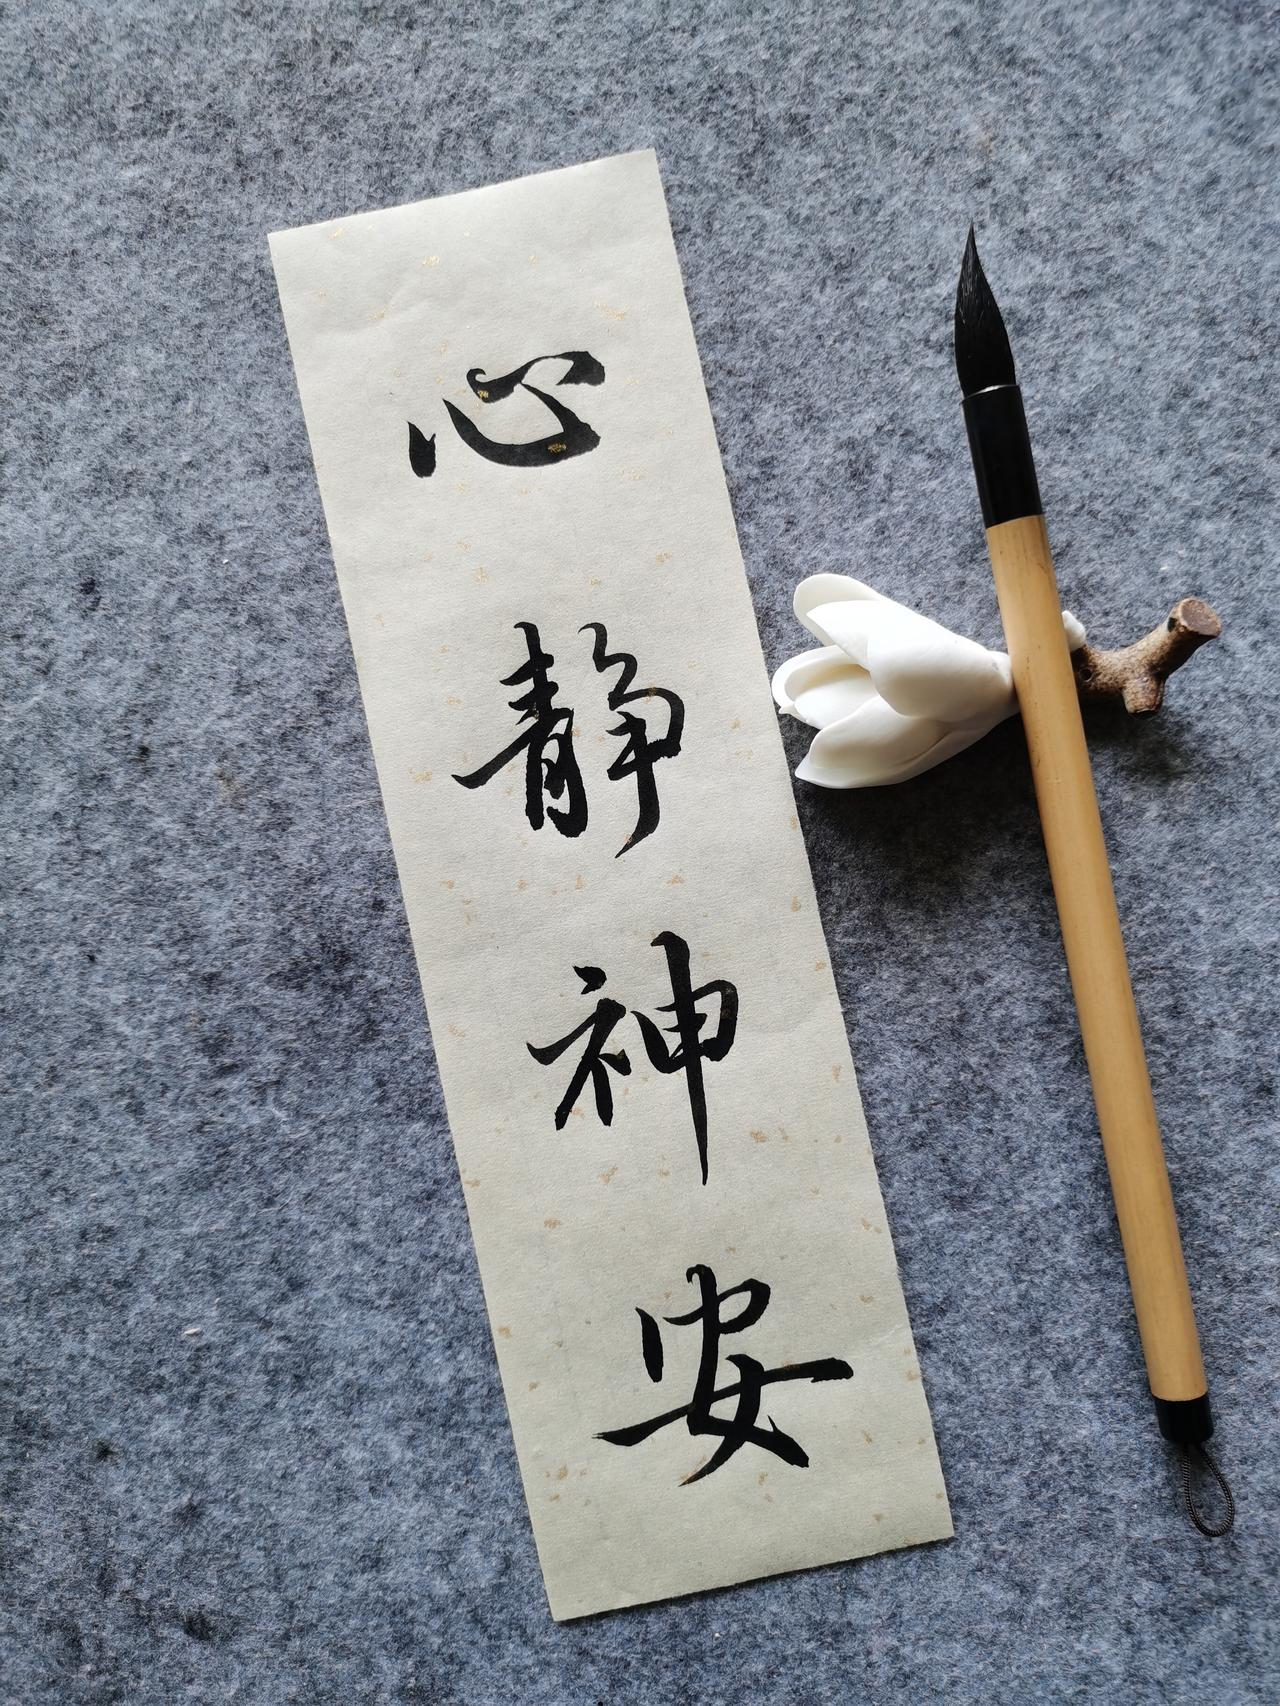 心静神安